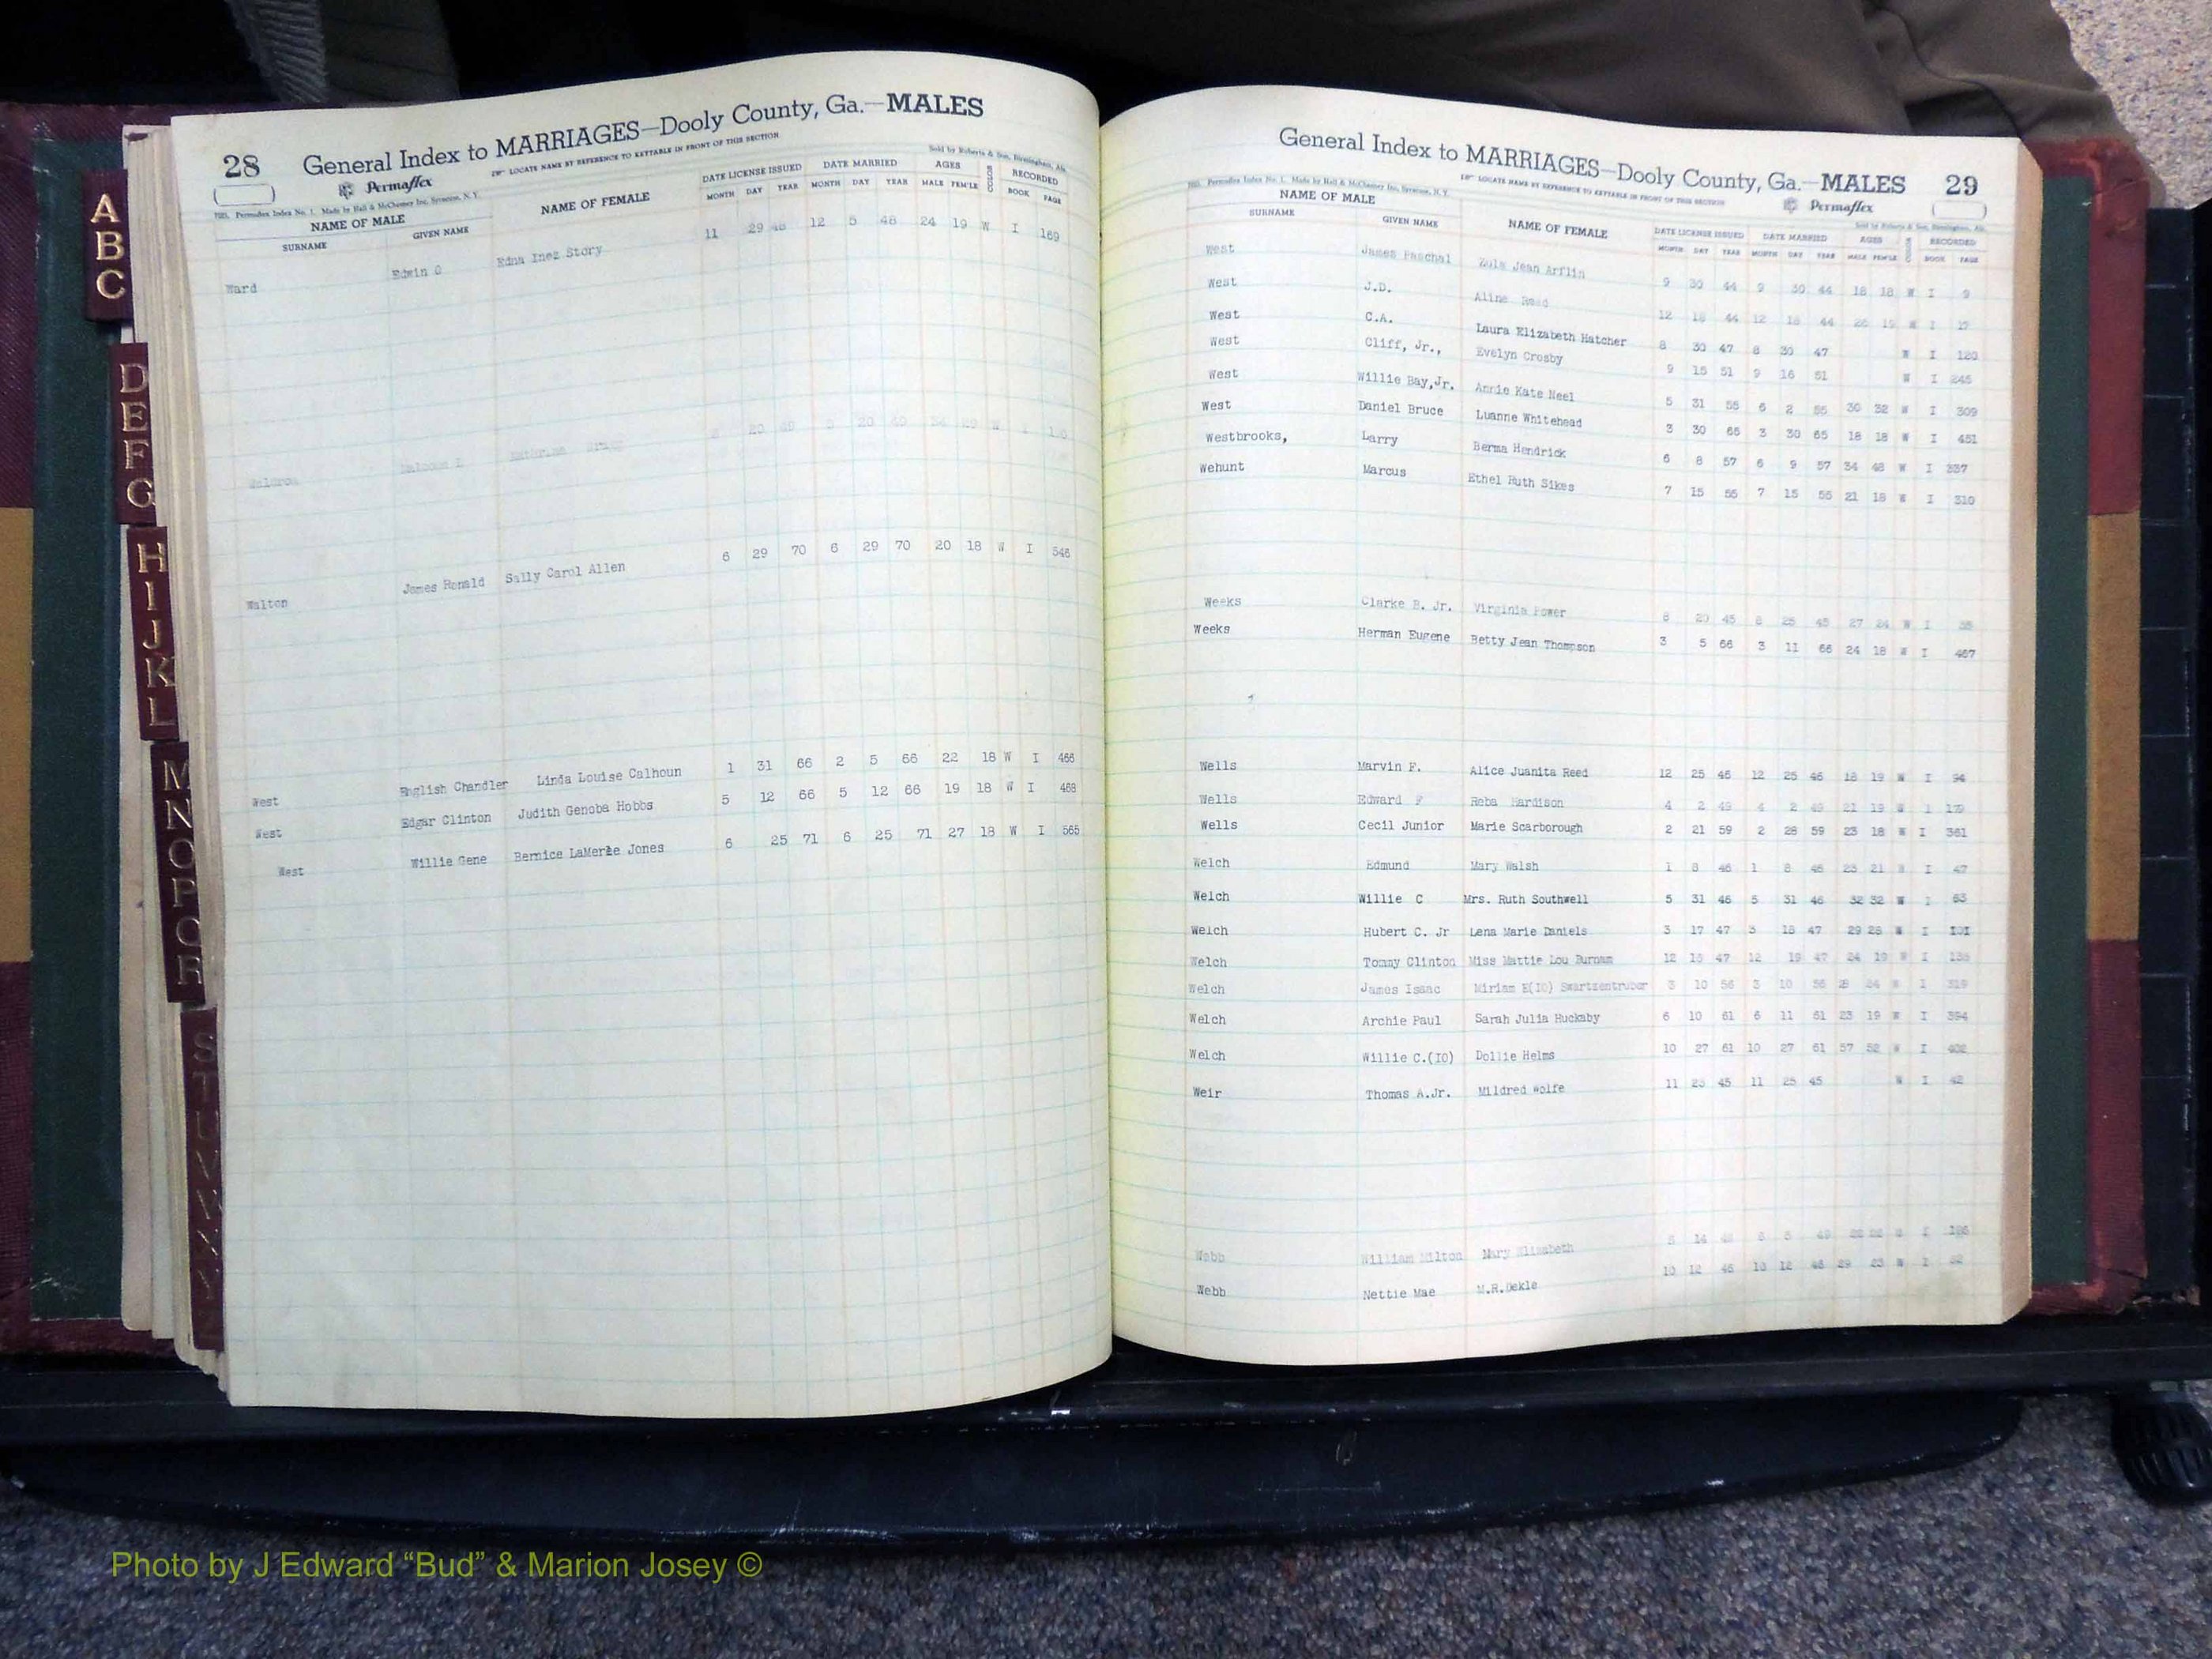 28
General Index to MARRIAGES—Dooly County, Ga.—MALES
Permaflex
LOCATE NAME BY REFERENCE TO KEYTABLE IN FRONT OF THIS SECTION
Sold by Roberts & Son, Birmingham, Ala.
Permadex Index No. 1. Made by Hall & McChesney Inc. Syracuse, N.Y.
NAME OF MALE NAME OF FEMALE DATE LICENSE ISSUED DATE MARRIED AGES COLOR RECORDED
SURNAME GIVEN NAME MONTH DAY YEAR MONTH DAY YEAR MALE FEM'LE BOOK PAGE
Ward Edwin O Edna Inez Story 11 29 48 12 5 48 24 19 W I 169
Walton James Ronald Sally Carol Allen 6 29 70 6 29 70 20 18 W I 546
West English Chandler Linda Louise Calhoun 1 31 66 2 5 66 22 18 W I 466
West Edgar Clinton Judith Genoba Hobbs 5 12 66 5 12 66 19 18 W I 468
West Willie Gene Bernice LaMerle Jones 6 25 71 6 25 71 27 18 W I 565
A
B
C
D
E
F
G
H
I
J
K
L
M
N
O
P
Q
R
S
T
U
V
W
X
Y
Z
General Index to MARRIAGES—Dooly County, Ga.—MALES 29
Permadex Index No. 1. Made by Hall & McChesney Inc. Syracuse, N.Y.
LOCATE NAME BY REFERENCE TO KEYTABLE IN FRONT OF THIS SECTION
Permaflex
Sold by Roberts & Son, Birmingham, Ala.
NAME OF MALE NAME OF FEMALE DATE LICENSE ISSUED DATE MARRIED AGES COLOR RECORDED
SURNAME GIVEN NAME MONTH DAY YEAR MONTH DAY YEAR MALE FEM'LE BOOK PAGE
West James Paschal Zola Jean Arflin 9 30 44 9 30 44 18 18 W I 9
West J.D. Aline Reed 12 18 44 12 18 44 19 W I 17
West C.A. Laura Elizabeth Hatcher 8 30 47 8 30 47 W I 120
West Cliff, Jr., Evelyn Crosby 9 15 51 9 16 51 W I 245
West Willie Bay,Jr. Annie Kate Neel 5 31 55 6 2 55 30 32 W I 309
West Daniel Bruce Luanne Whitehead 3 30 65 3 30 65 18 18 W I 451
Westbrooks, Larry Berma Hendrick 6 8 57 6 9 57 34 48 W I 337
Wehunt Marcus Ethel Ruth Sikes 7 15 55 7 15 55 21 18 W I 310
Weeks Clarke B. Jr. Virginia Power 8 20 45 8 25 45 27 24 W I
Weeks Herman Eugene Betty Jean Thompson 3 5 66 3 11 66 24 18 W I 467
Wells Marvin F. Alice Juanita Reed 12 25 46 12 25 46 18 19 W I 94
Wells Edward F Reba Hardison 4 2 49 4 2 49 21 19 W I 179
Wells Cecil Junior Marie Scarborough 2 21 59 2 28 59 23 18 W I 361
Welch Edmund Mary Walsh 1 8 46 1 8 46 21 W I 47
Welch Willie C Mrs. Ruth Southwell 5 31 46 5 31 46 32 32 W I 63
Welch Hubert C. Jr Lena Marie Daniels 3 17 47 3 18 47 29 25 W I 101
Welch Tommy Clinton Miss Mattie Lou Burnam 12 47 12 19 47 24 19 W I
Welch James Isaac Miriam E(IO) Swartzentruber 3 10 56 3 10 56 24 W I 319
Welch Archie Paul Sarah Julia Huckaby 6 10 61 6 11 61 23 19 W I 394
Welch Willie C.(IO) Dollie Helms 10 27 61 10 27 61 57 52 W I 402
Weir Thomas A.Jr. Mildred Wolfe 11 23 45 11 25 45 W I 42
Webb William Milton Mary Elizabeth 14 49 22 22 I 186
Webb Nettie Mae M.R.Dekle 10 12 46 10 12 46 29 23 W I 82
Photo by J Edward “Bud” & Marion Josey ©